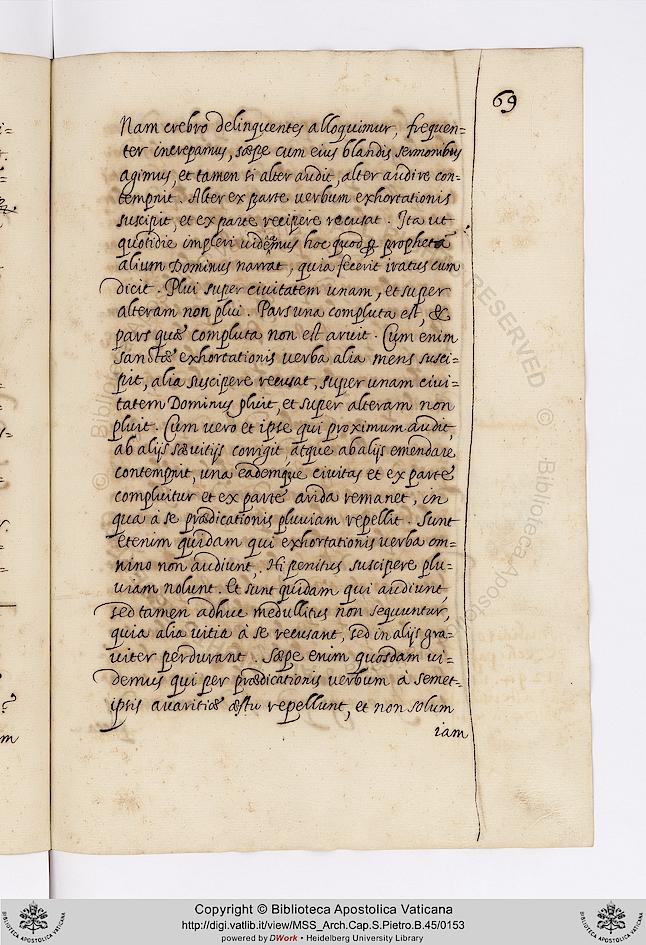 69
Nam crebro delinquentes alloquimur, frequen-
ter increpamus, sæpe cum eius blandis sermonibus
agimus, et tamen si alter audit, alter audire con-
tempnit. Alter ex parte verbum exhortationis
suscipit, et ex parte recipere recusat. Ita ut
quotidie impleri videamus hoc quod prophetā
alium Dominus narrat, quia fecerit iratus cum
dicit. Plui super civitatem unam, et super
alteram non plui. Pars una compluta est, &
pars quæ compluta non est aruit. Cum enim
sanctæ exhortationis verba alia mens susci-
pit, alia suscipere recusat, super unam civi-
tatem Dominus pluit, et super alteram non
pluit. Cum vero et ipse qui proximum audit,
ab alijs sævitijs corrigit, atque ab alijs emendare
contempnit, una eademque civitas et ex parte
compluitur et ex parte arida remanet, in
qua à se prædicationis pluviam repellit. Sunt
etenim quidam qui exhortationis verba om-
nino non audiunt, Hi penitus suscipere plu-
viam nolunt. Et sunt quidam qui audiunt,
sed tamen adhuc medullitus non sequuntur,
quia alia vitia à se recusant, sed in alijs gra-
viter perdurant. Sæpe enim quosdam vi-
demus qui per prædicationis verbum a semet-
ipsis avaritiæ æstu repellunt, et non solum
iam
RESERVED © Biblioteca Aposto
© Biblioteca
Copyright © Biblioteca Apostolica Vaticana
http://digi.vatlib.it/view/MSS_Arch.Cap.S.Pietro.B.45/0153
powered by DWork • Heidelberg University Library